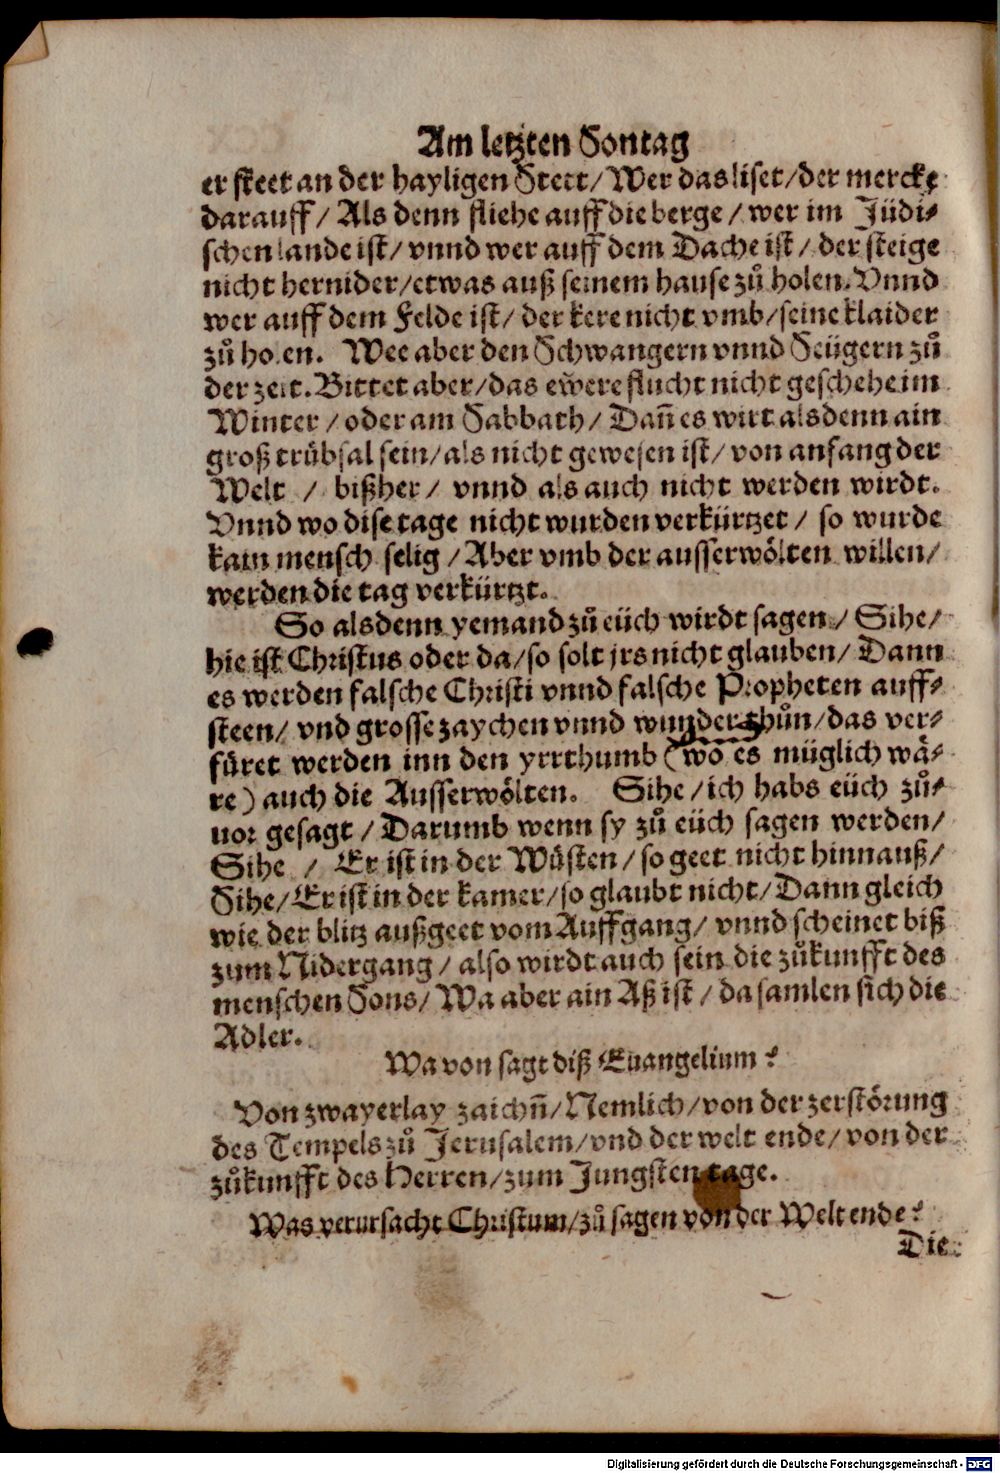 Am letzten Sontag
er steet an der hayligen Stett/ Wer das liset/ der mercke
darauff/ Als denn fliehe auff die berge/ wer im Jüdi⸗
schen lande ist/ vnnd wer auff dem Dache ist/ der steige
nicht hernider/ etwas auß seinem hause zů holen. Vnnd
wer auff dem Felde ist/ der kere nicht vmb/ seine klaider
zů holen. Wee aber den Schwangern vnnd Seügern zů
der zeit. Bittet aber/ das ewere flucht nicht geschehe im
Winter/ oder am Sabbath/ Dañ es wirt alsdenn ain
groß trübsal sein/ als nicht gewesen ist/ von anfang der
Welt / bißher/ vnnd als auch nicht werden wirdt.
Vnnd wo dise tage nicht wurden verkürtzet/ so wurde
kain mensch selig/ Aber vmb der ausserwölten willen/
werden die tag verkürtzt.
So alsdenn yemand zů eüch wirdt sagen/ Sihe/
hie ist Christus oder da/ so solt jrs nicht glauben/ Dann
es werden falsche Christi vnnd falsche Propheten auff⸗
steen/ vnd grosse zaychen vnnd wunder thůn/ das ver⸗
füret werden inn den yrrthumb (wo es müglich wä⸗
re) auch die Ausserwölten. Sihe/ ich habs eüch zů⸗
uor gesagt/ Darumb wenn sy zů eüch sagen werden/
Sihe / Er ist in der Wüsten/ so geet nicht hinnauß/
Sihe/ Er ist in der kamer/ so glaubt nicht/ Dann gleich
wie der blitz außgeet vom Auffgang/ vnnd scheinet biß
zum Nidergang/ also wirdt auch sein die zůkunfft des
menschen Sons/ Wa aber ain Aß ist/ da samlen sich die
Adler.
Wa von sagt diß Euangelium?
Von zwayerlay zaichñ/ Nemlich/ von der zerstörung
des Tempels zů Jerusalem/ vnd der welt ende/ von der
zůkunfft des Herren/ zum Jungsten tage.
Was verursacht Christum/ zů sagen von der Welt ende?
Die
Digitalisierung gefördert durch die Deutsche Forschungsgemeinschaft - DFG